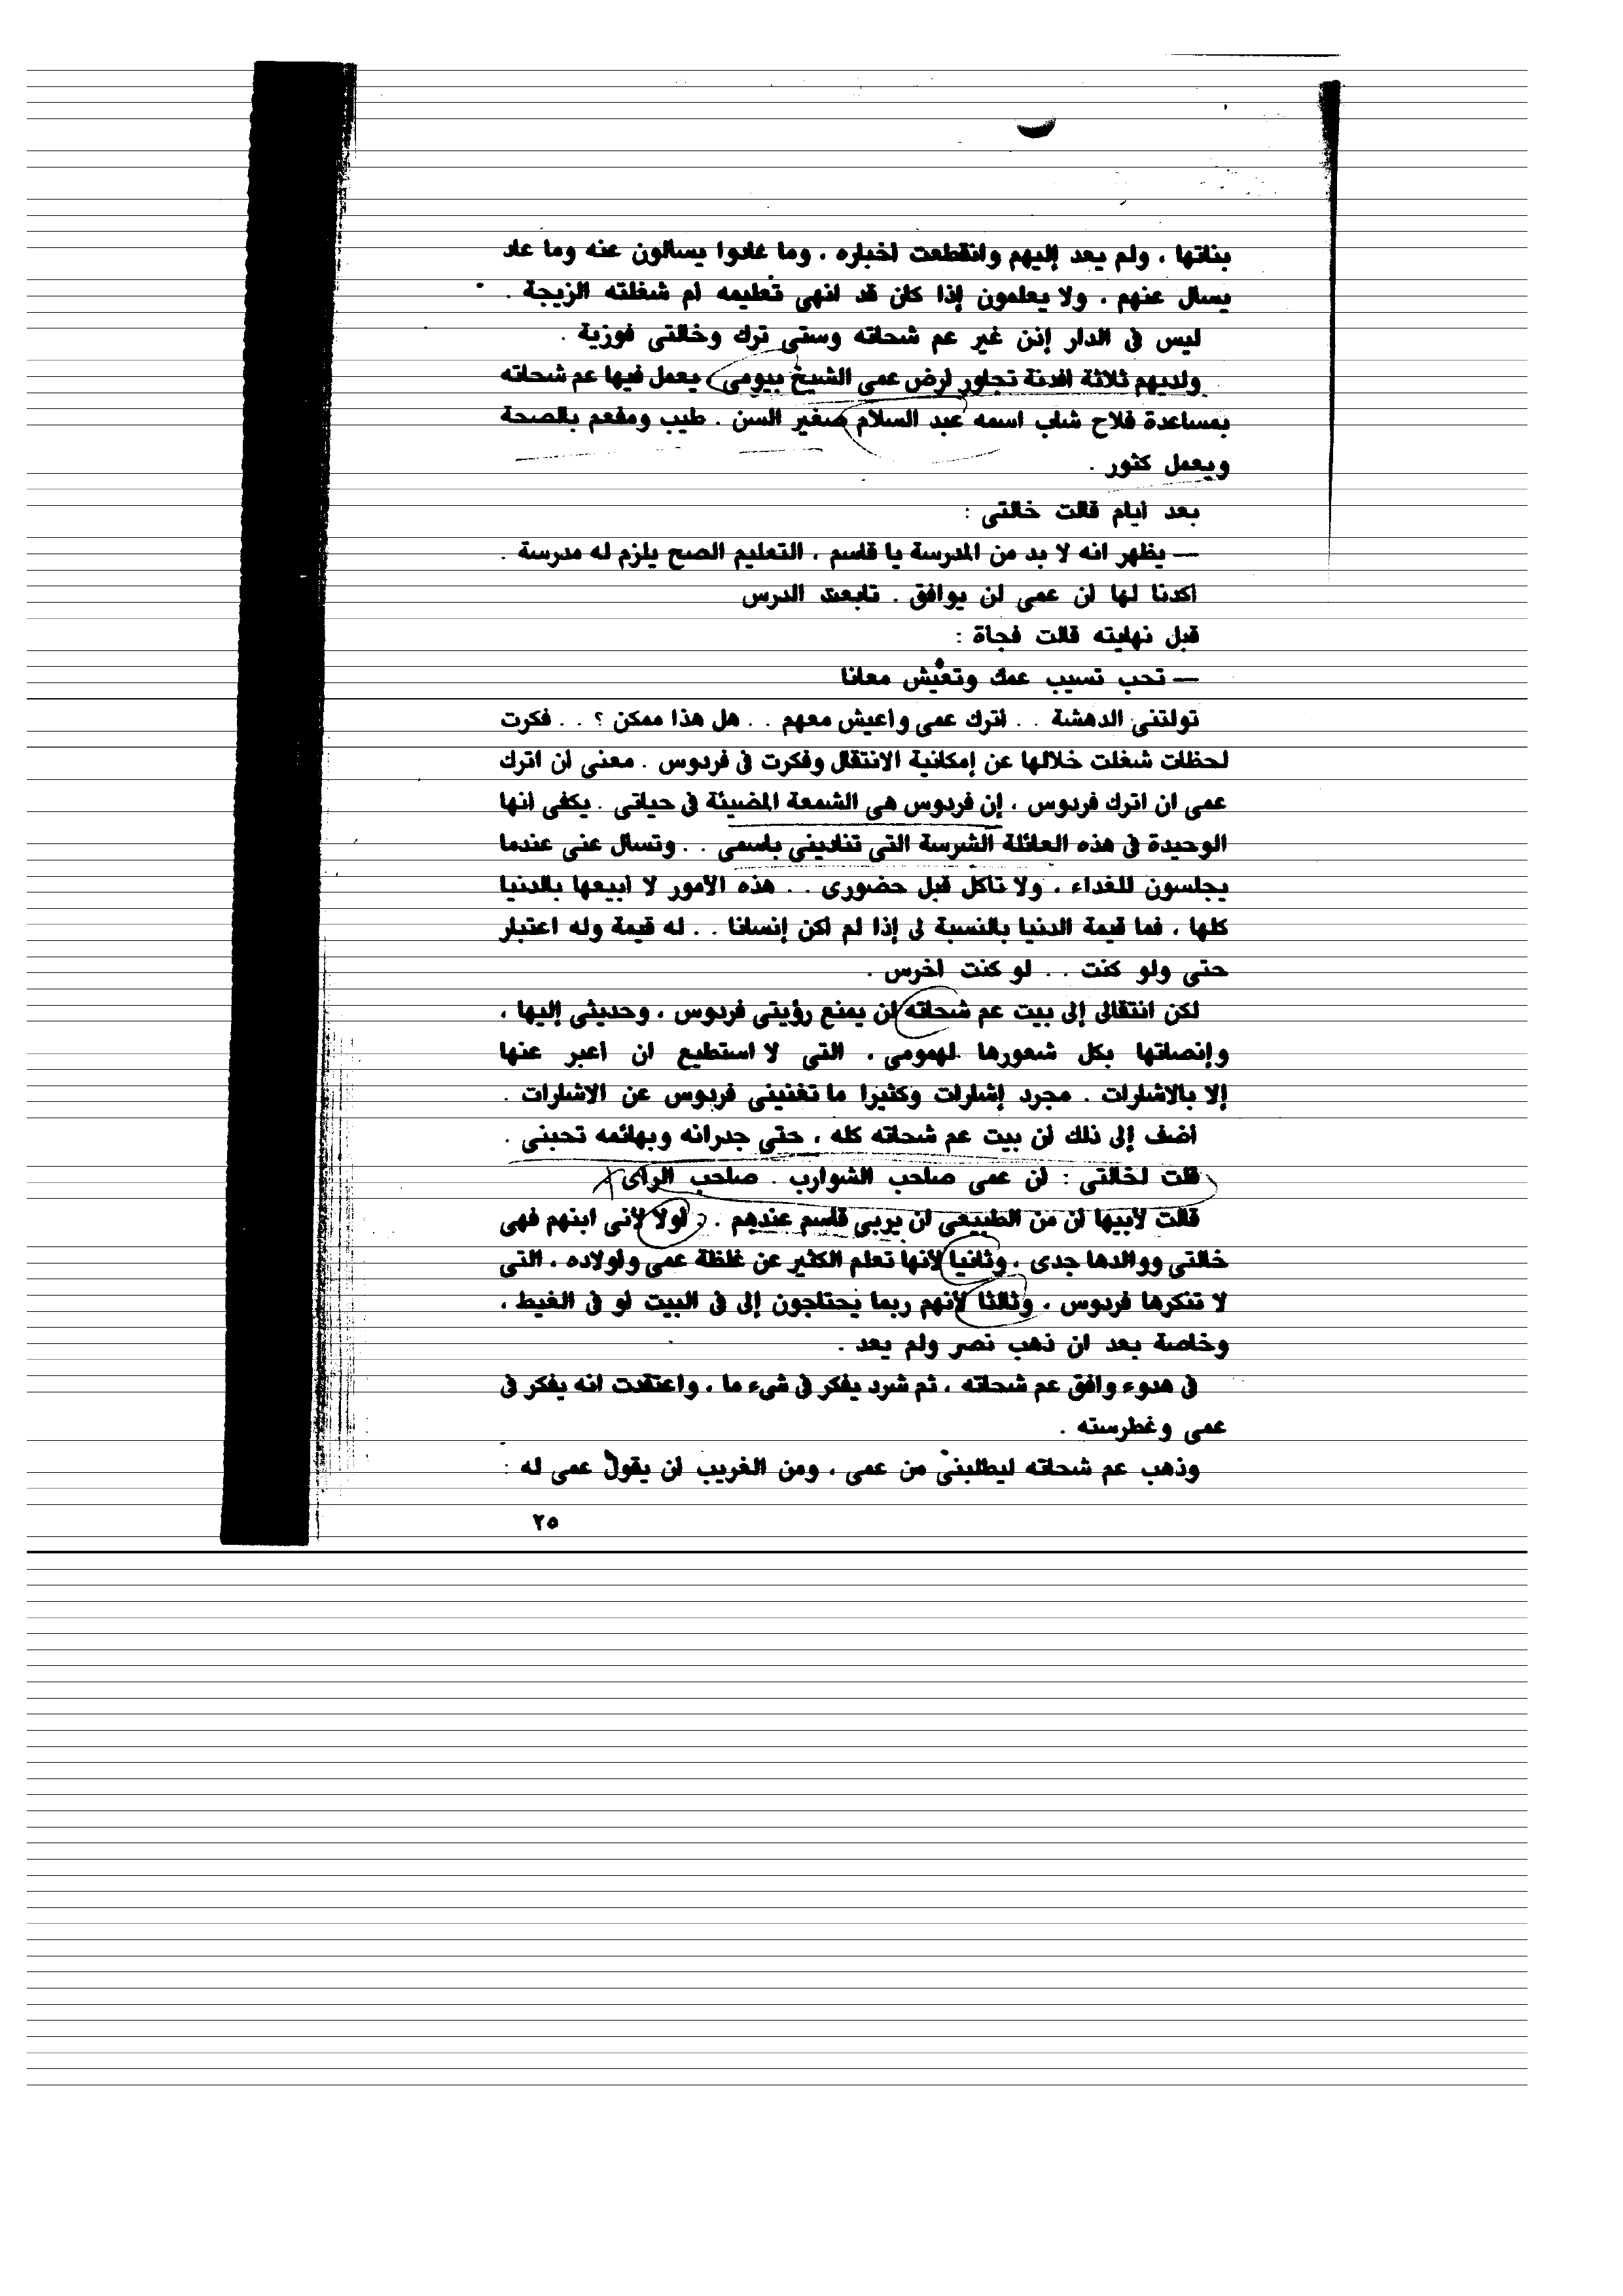 بناتها ، ولم يعد إليهم وانقطعت أخباره ، وما عادوا يسألون عنه وما عاد
يسأل عنهم ، ولا يعلمون إذا كان قد أنهى تعليمه أم شغلته الزيجة .
ليس فى الدار إذن غير عم شحاته وستى ترك وخالتى فوزية .
ولديهم ثلاثة أفدنة تجاور أرض عمى الشيخ بيومى يعمل فيها عم شحاته
بمساعدة فلاح شاب اسمه عبد السلام صغير السن . طيب ومفعم بالصحة
ويعمل كثور .
بعد أيام قالت خالتى :
— يظهر انه لا بد من المدرسة يا قاسم ، التعليم الصح يلزم له مدرسة .
أكدنا لها أن عمى لن يوافق . تابعت الدرس
قبل نهايته قالت فجأة :
— تحب تسيب عمك وتعيش معانا
تولتنى الدهشة . . أترك عمى وأعيش معهم . . هل هذا ممكن ؟ . . فكرت
لحظات شغلت خلالها عن إمكانية الانتقال وفكرت فى فردوس . معنى أن أترك
عمى ان اترك فردوس ، إن فردوس هى الشمعة المضيئة فى حياتى . يكفى أنها
الوحيدة فى هذه العائلة الشرسة التى تنادينى باسمى . . وتسأل عنى عندما
يجلسون للغداء ، ولا تأكل قبل حضورى . . هذه الأمور لا أبيعها بالدنيا
كلها ، فما قيمة الدنيا بالنسبة لى إذا لم أكن إنسانا . . له قيمة وله اعتبار
حتى ولو كنت . . لو كنت أخرس .
لكن انتقالى إلى بيت عم شحاته لن يمنع رؤيتى فردوس ، وحديثى إليها ،
وإنصاتها بكل شعورها لهمومى ، التى لا استطيع ان أعبر عنها
إلا بالاشارات . مجرد إشارات وكثيرا ما تغنينى فردوس عن الاشارات .
أضف إلى ذلك أن بيت عم شحاته كله ، حتى جدرانه وبهائمه تحبنى .
قلت لخالتى : أن عمى صاحب الشوارب . صاحب الرأى
قالت لأبيها أن من الطبيعى أن يربى قاسم عندهم . . أولا لأنى ابنهم فهى
خالتى ووالدها جدى ، وثانيا لأنها تعلم الكثير عن غلظة عمى وأولاده ، التى
لا تنكرها فردوس ، وثالثا لأنهم ربما يحتاجون إلى فى البيت أو فى الغيط ،
وخاصة بعد ان ذهب نصر ولم يعد .
فى هدوء وافق عم شحاته ، ثم شرد يفكر فى شىء ما ، واعتقدت انه يفكر فى
عمى وغطرسته .
وذهب عم شحاته ليطلبنى من عمى ، ومن الغريب أن يقول عمى له :
٢٥